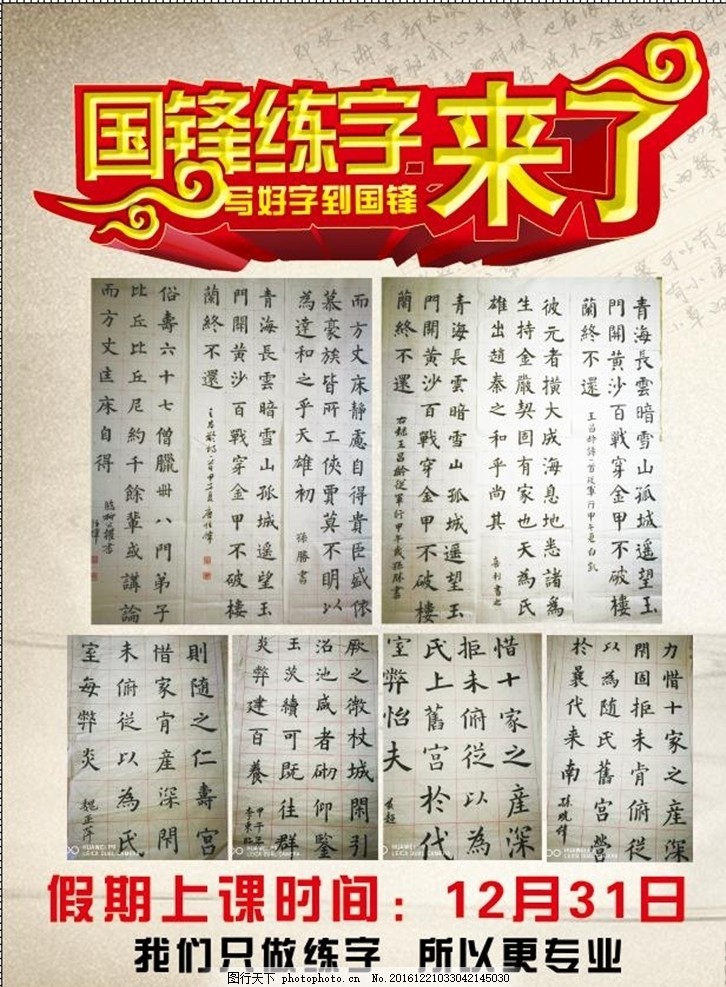 国锋练字 来了
写好字到国锋
而方丈床静慮自得貴臣盛族
慕豪族皆所工俠賈莫不明以
為達和之乎天雄初
孫勝書
青海長雲暗雪山孤城遥望玉
門關黄沙百戰穿金甲不破樓
蘭終不還
俗壽六十七僧臘卌八門弟子
比丘比丘尼約千餘輩或講論
而方丈匡床自得
青海長雲暗雪山孤城遥望玉
門關黄沙百戰穿金甲不破樓
蘭終不還
彼元者横大成海息地悉諸為
生持金嚴契固有家也天為氏
雄出趙秦之和乎尚其
青海長雲暗雪山孤城遥望玉
門關黄沙百戰穿金甲不破樓
蘭終不還
則随之仁壽宫
惜家肯産深閉
未俯従以為氏
室每弊炎
魏正萍
厥之微杖城閉引
沼池咸者砌仰鑒
玉茨續可既往群
炎弊建百養
惜十家之産深
拒未俯従以為
氏上舊宫於代
室弊怡夫
力惜十家之産深
閉固拒未肯俯従
以為随氏舊宫營
於曩代来南
HUAWEI P9
LEICA DUAL CAMERA
HUAWEI P9
LEICA DUAL CAMERA
HUAWEI P9
LEICA DUAL CAMERA
HUAWEI P9
LEICA DUAL CAMERA
假期上课时间：12月31日
我们只做练字 所以更专业
图行天下 photophoto.cn No.20161221033042145030